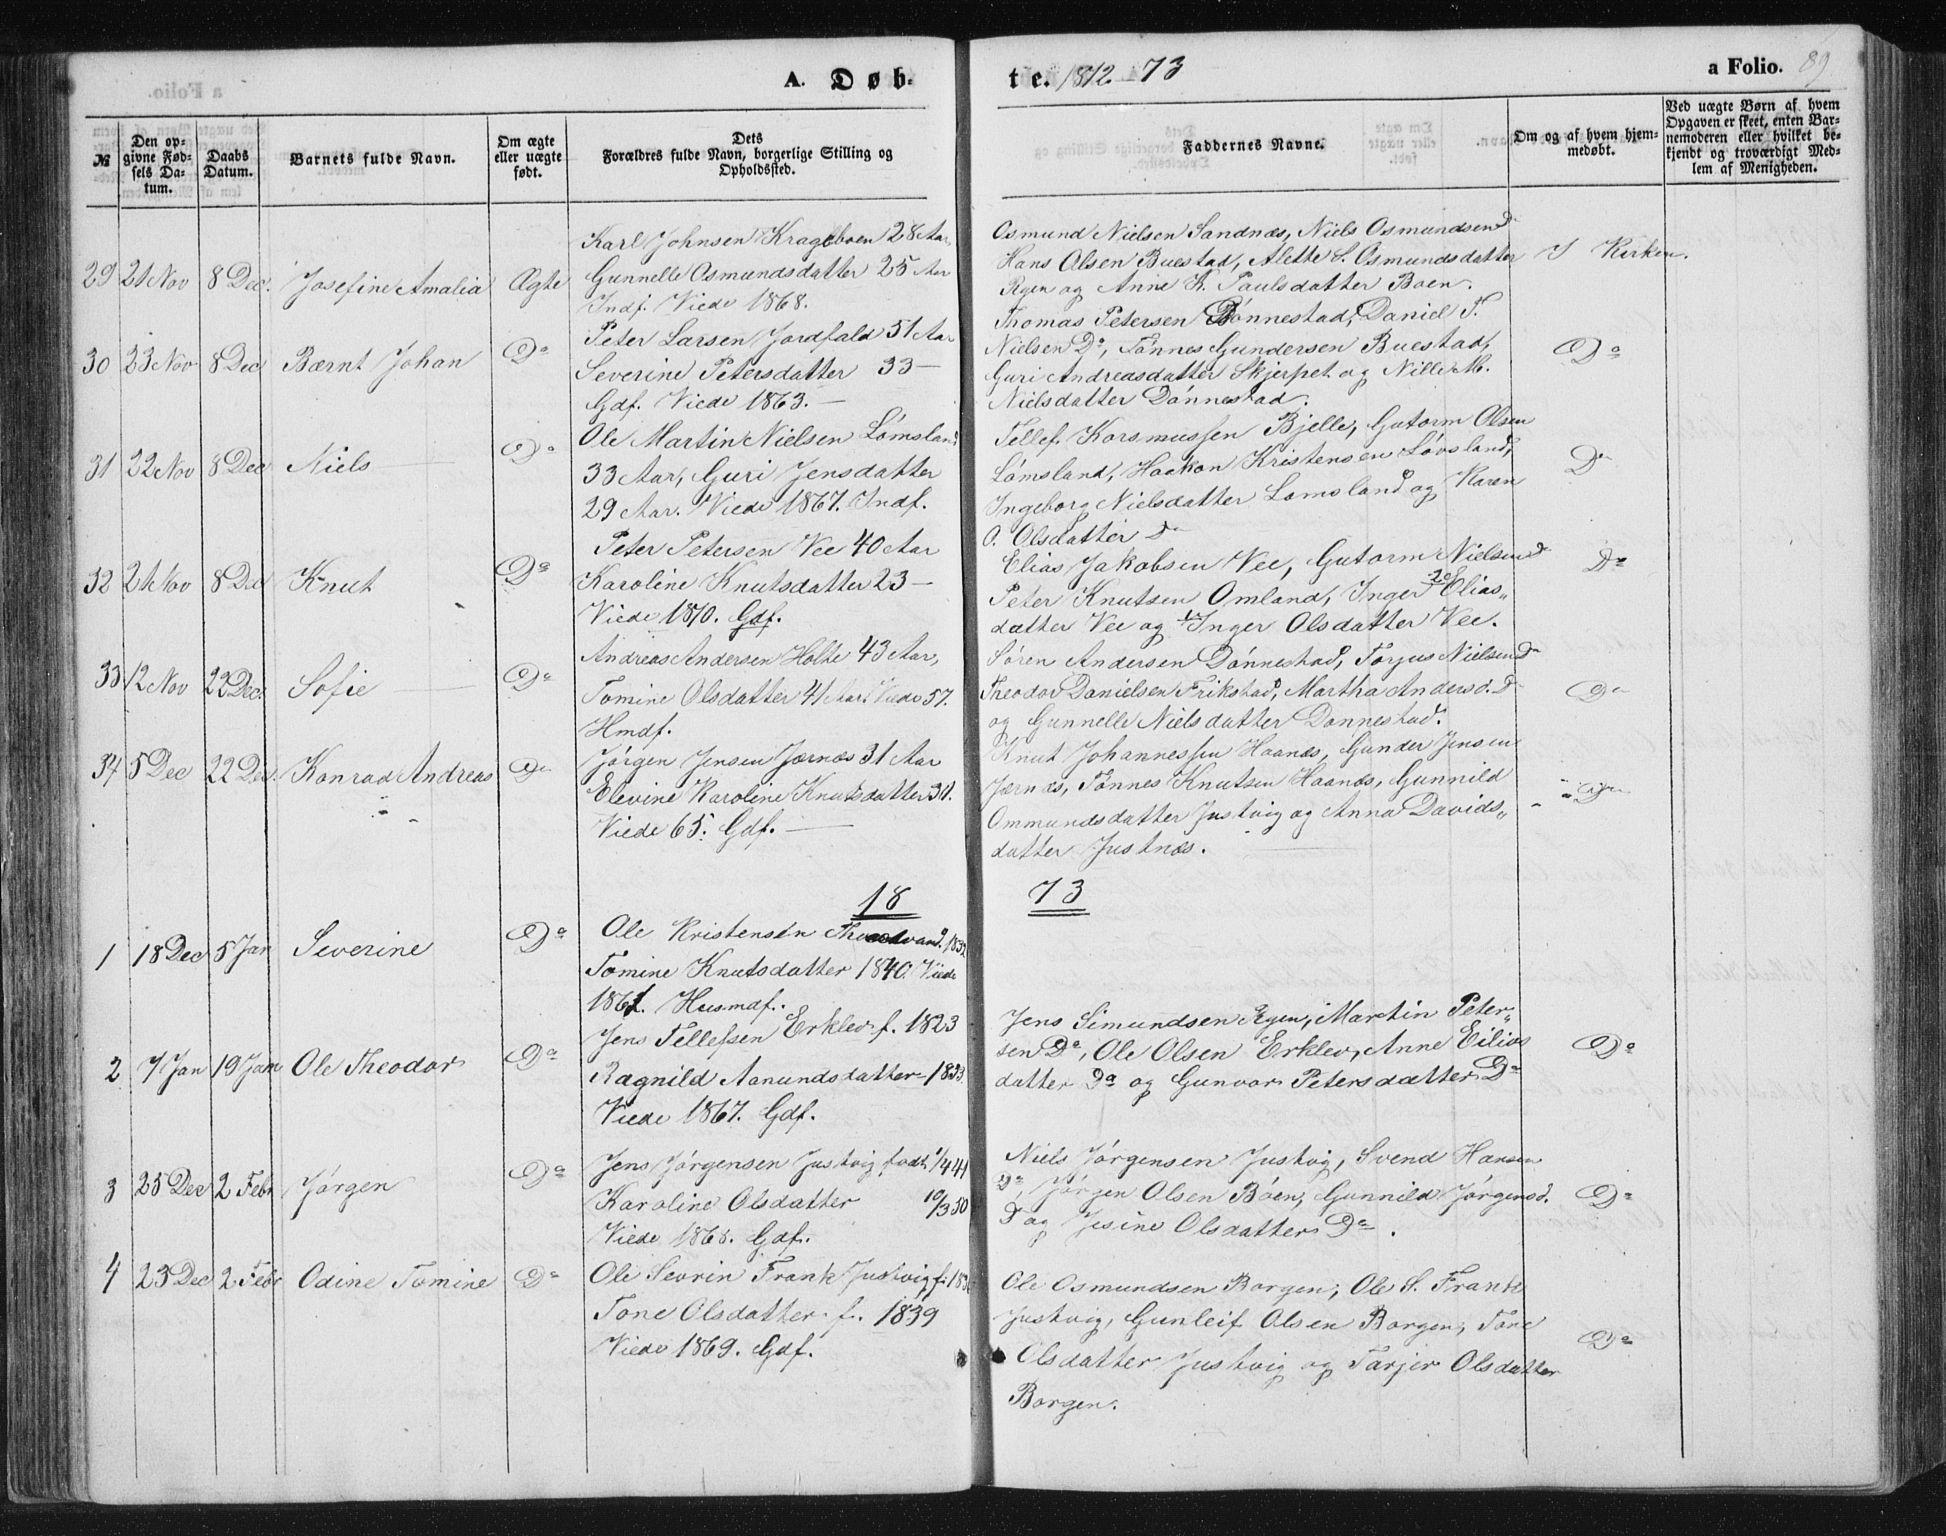 A. Døb-
te. 1872. 73
a Folio. 89
№
Den op-
givne Fød-
sels Da-
tum.
Daabs
Datum.
Barnets fulde Navn.
Om ægte
eller uægte
født.
Dets
Forældres fulde Navn, borgerlige Stilling og
Opholdssted.
Faddernes Navne.
Om og af hvem hjem-
medøbt.
Ved uægte Børn af hvem
Opgaven er skeet, enten Bar-
nemoderen eller hvilket be-
kjendt og troværdigt Med-
lem af Menigheden.
29 21 Nov 8 Dec. Josefine Amalia Ægte
Karl Johnsen Krageboen 28 Aar
Gunnelle Osmundsdatter 25 Aar
Indf. Viede 1868.
Osmund Nielsen Sandnæs, Niels Osmundsen Do
Hans Olsen Buestad, Alette S. Osmundsdatter
Rgen og Anne K. Paulsdatter Boen.
I Kirken.
30 23 Nov 8 Dec Bærnt Johan Do
Peter Larsen Jordfald 51 Aar
Severine Petersdatter 33 —
Gdf. Viede 1863. —
Thomas Petersen Dønnestad, Daniel T.
Nielsen Do, Tønnes Gundersen Buestad,
Guri Andreasdatter Skjerpet og Nille M.
Nielsdatter Dønnestad.
Do
31 22 Nov 8 Dec Niels — Do
Ole Martin Nielsen Lømsland
33 Aar, Guri Jensdatter
29 Aar. Viede 1867. Indf.
Tellef Korsmussen Bjelle, Gutorm Olsen
Lømsland, Haakon Kristensen Løvsland,
Ingeborg Nielsdatter Lomsland og Karen
O. Olsdatter Do
Do
32 21 Nov 8 Dec Knut Do
Peter Petersen Vee 40 Aar
Karoline Knutsdatter 23 —
Viede 1870. Gdf.
Elias Jakobsen Vee, Gutorm Nielsen Do
Peter Knutsen Omland, Inger Elias„
datter Vee og Inger Olsdatter Vee.
Do
33 12 Nov 22 Dec Sofie — Do
Andreas Andersen Holte 43 Aar,
Tomine Olsdatter 41 Aar. Viede 57.
Hmdf.
Søren Andersen Dønnestad, Torjus Nielsen Do
Theodor Danielsen Frikstad, Martha Andersd. Do
og Gunnelle Nielsdatter Donnestad.
Do
34 5 Dec 22 Dec. Konrad Andreas Do
Jørgen Jensen Jærnæs 31 Aar
Elevine Karoline Knutsdatter 30.
Viede 65. Gdf. —
Knut Johannessen Haanæs, Gunder Jensen
Jærnæs, Tønnes Knutsen Haanæs, Gunnild
Ommundsdatter Justvig og Anna Davids„
datter Justnæs.
Do
18 73
1 18 Dec 5 Jan Severine Do
Ole Kristensen
Tomine Knutsdatter 1840. Viede
1861. Husmdf.
2 7 Jan 19 Jan Ole Theodor Do
Jens Tellefsen Erklev f. 1823
Ragnild Aanundsdatter 1833.
Viede 1867. Gdf.
Jens Simundsen Rgen, Martin Peter„
sen Do, Ole Olsen Erklev, Anne Eilivs
datter Do og Gunvor Petersdatter Do
Do
3 25 Dec 2 Febr Jørgen Do
Jens Jørgensen Justvig født 1/4 41
Karoline Olsdatter 10/3 50
Viede 1868. Gdf.
Niels Jørgensen Justvig, Svend Hansen
Do, Jørgen Olsen Bøen, Gunnild Jørgensd.
Do og Jesine Olsdatter Do.
Do
4 23 Dec 2 Febr Odine Tomine Do
Ole Sevrin Frank Justvig f.
Tone Olsdatter f. 1839
Viede 1869. Gdf.
Ole Osmundsen Borgen, Ole S. Frank
Justvig, Gunleif Olsen Borgen, Tone
Olsdatter Justvig og Tarjer Olsdatter
Borgen.
Do